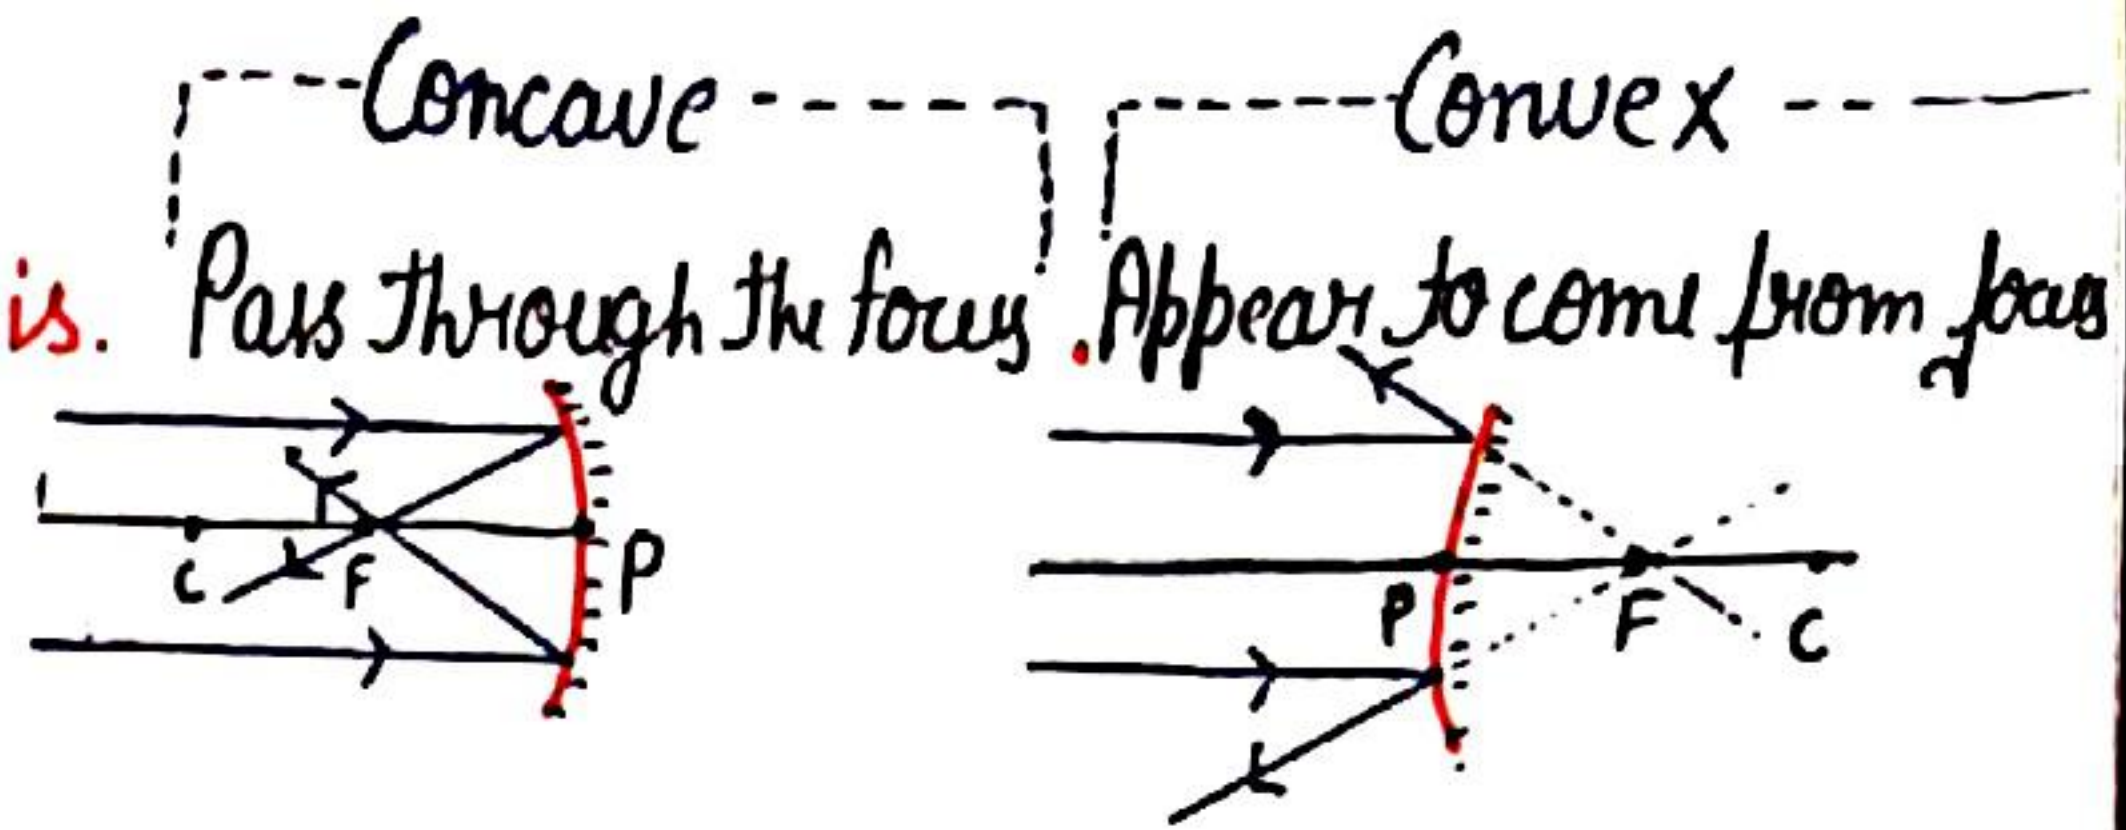 Concave
Convex
is. Pass through the focus. Appear to come from focus
C
F
P
P
F
C